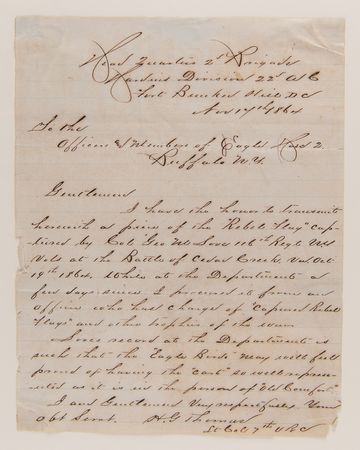 Head Quarters 2d Brigade
Hardins Division 22d A C
Fort Bunker Hill D C
Nov 17th 1864
To the
Officers & Members of Eagle Hose 2.
Buffalo N.Y.
Gentlemen
I have the honor to transmit
herewith a piece of the Rebel Flag "cap-
tured by Col Geo M Love 116th Regt NY
Vols at the Battle of Cedar Creek Va Oct
19th 1864. While at the Department a
few days since I procured it from an
officer who has charge of "Captured Rebel
Flags" and other trophies of the war
Loves record at the Department is
such that the "Eagle Birds" may well feel
proud of having the "cart" so well repres-
ented as it is in the person of "Old Comfort".
I am Gentlemen Very respectfully Your
Obt Servt. H G Thomas
Lt Col 7th